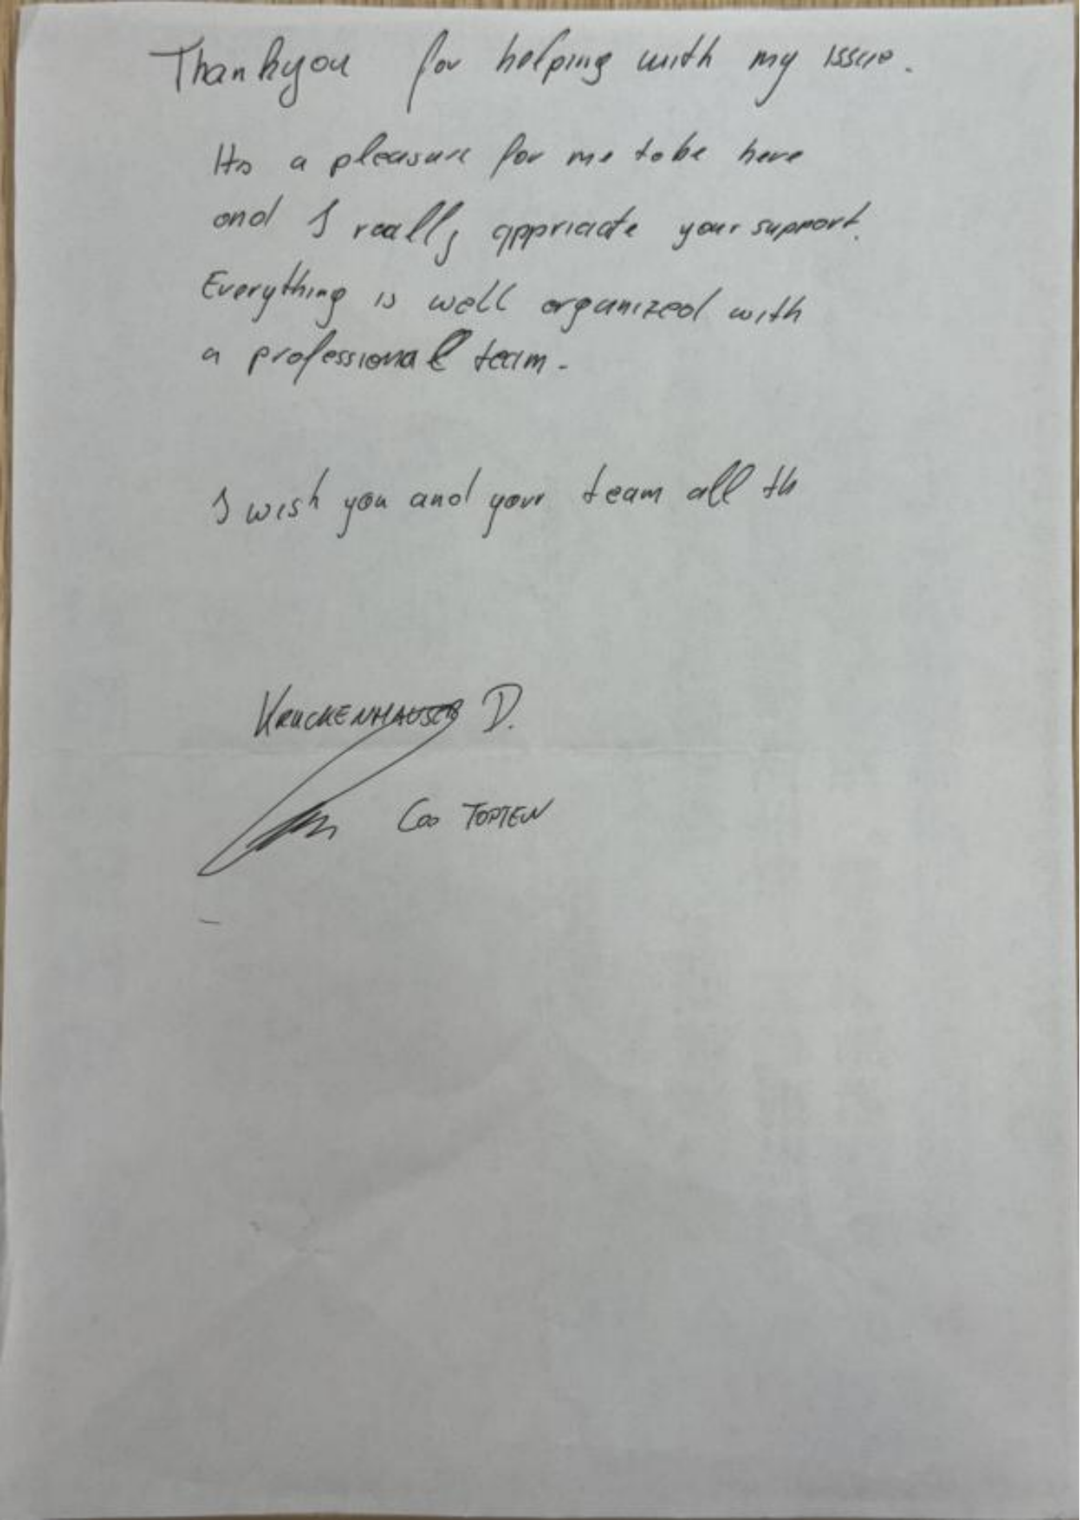 Thankyou for helping with my issue.
Its a pleasure for me to be here
and I really appriciate your support.
Everything is well organized with
a professional team.
I wish you and your team all th
KRUCKENHAUSER D.
COO TOPTEN